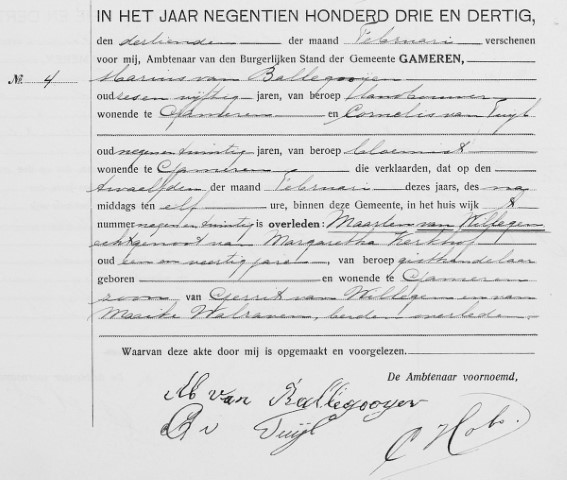 IN HET JAAR NEGENTIEN HONDERD DRIE EN DERTIG,
den dertienden der maand Februari verschenen
voor mij, Ambtenaar van den Burgerlijken Stand der Gemeente GAMEREN,
No. 4 Marinus van Ballegooijen
oud zes en vijftig jaren, van beroep landbouwer
wonende te Gameren en Cornelis van Tuijl
oud negen en twintig jaren, van beroep
wonende te Gameren die verklaarden, dat op den
twaalfden der maand Februari dezes jaars, des na
middags ten elf ure, binnen deze Gemeente, in het huis wijk
nummer negen en twintig is overleden: Maarten van Willegen
echtgenoot van Margaretha Kerkhof
oud een en veertig jaren, van beroep gisthandelaar
geboren en wonende te Gameren
zoon van Gerrit van Willegen en van
Maaike Walraven, beiden overleden.
Waarvan deze akte door mij is opgemaakt en voorgelezen.
De Ambtenaar voornoemd,
M van Ballegooyen
v Tuijl